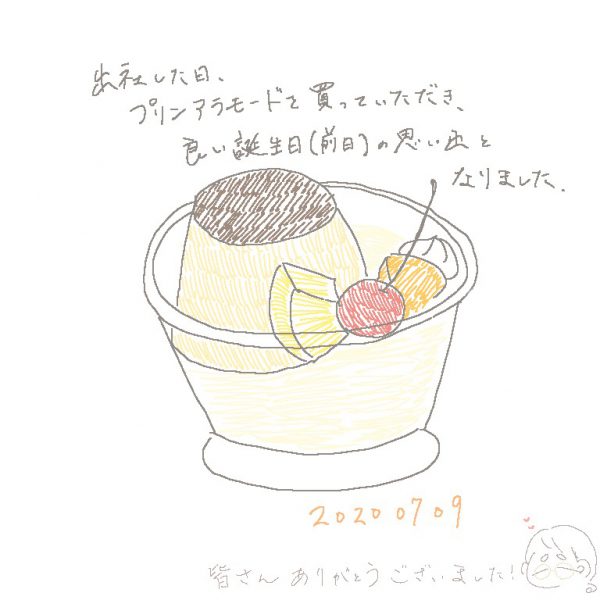 出社した日、
プリンアラモードを買っていただき、
良い誕生日(前日)の思い出と
なりました.
20200709
皆さんありがとうございました!